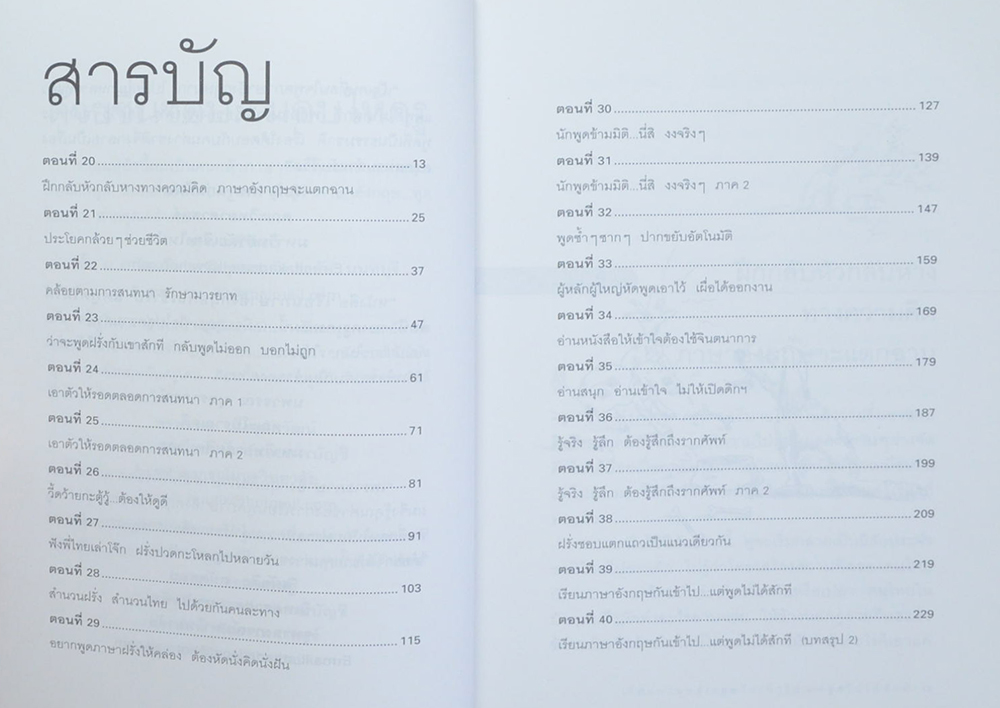 สารบัญ
ตอนที่ 20 13
ฝึกกลับหัวกลับหางทางความคิด ภาษาอังกฤษจะแตกฉาน
ตอนที่ 21 25
ประโยคกล้วยๆ ช่วยชีวิต
ตอนที่ 22 37
คล้อยตามการสนทนา รักษามารยาท
ตอนที่ 23 47
ว่าจะพูดฝรั่งกับเขาสักที กลับพูดไม่ออก บอกไม่ถูก
ตอนที่ 24 61
เอาตัวให้รอดตลอดการสนทนา ภาค 1
ตอนที่ 25 71
เอาตัวให้รอดตลอดการสนทนา ภาค 2
ตอนที่ 26 81
วี้ดว้ายกะตู้วู้...ต้องให้ดูดี
ตอนที่ 27 91
ฟังพี่ไทยเล่าโจ๊ก ฝรั่งปวดกะโหลกไปหลายวัน
ตอนที่ 28 103
สำนวนฝรั่ง สำนวนไทย ไปด้วยกันคนละทาง
ตอนที่ 29 115
อยากพูดภาษาฝรั่งให้คล่อง ต้องหัดนั่งคิดนั่งฝัน
ตอนที่ 30 127
นักพูดข้ามมิติ...นี่สิ งงจริงๆ
ตอนที่ 31 139
นักพูดข้ามมิติ...นี่สิ งงจริงๆ ภาค 2
ตอนที่ 32 147
พูดซ้ำๆ ซากๆ ปากขยับอัตโนมัติ
ตอนที่ 33 159
ผู้หลักผู้ใหญ่หัดพูดเอาไว้ เผื่อได้ออกงาน
ตอนที่ 34 169
อ่านหนังสือให้เข้าใจต้องใช้จินตนาการ
ตอนที่ 35 179
อ่านสนุก อ่านเข้าใจ ไม่ให้เปิดดิกฯ
ตอนที่ 36 187
รู้จริง รู้ลึก ต้องรู้สึกถึงรากศัพท์
ตอนที่ 37 199
รู้จริง รู้ลึก ต้องรู้สึกถึงรากศัพท์ ภาค 2
ตอนที่ 38 209
ฝรั่งชอบแตกแถวเป็นแนวเดียวกัน
ตอนที่ 39 219
เรียนภาษาอังกฤษกันเข้าไป...แต่พูดไม่ได้สักที
ตอนที่ 40 229
เรียนภาษาอังกฤษกันเข้าไป...แต่พูดไม่ได้สักที (บทสรุป 2)